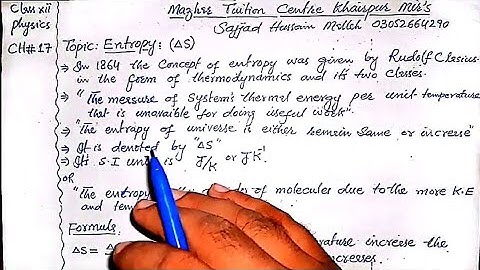 Class xii
physics
CH#17
Mazhar Tuition Centre Khairpur Mir's
Sajjad Hussain Mallah 03052664290
Topic: Entropy: (ΔS)
⇒ In 1864 the Concept of entropy was given by Rudolf Clasius
in the form of thermodynamics and its two Classes.
⇒ "The measure of system's thermal energy per unit temperature
that is unavaible for doing useful work".
⇒ "The entropy of universe is either remain same or increase"
⇒ It is denoted by "ΔS"
⇒ It's S.I unit is J/K or J-K⁻¹
or
"The entropy of molecules due to the more K.E
and tem
Formula:
ΔS = increase the